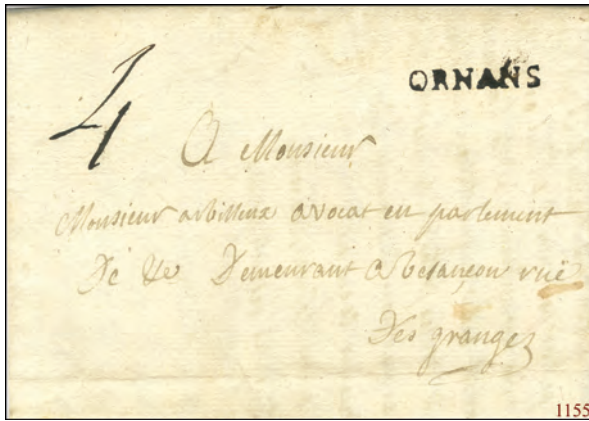 ORNANS
4
A Monsieur
Monsieur arbilleux avocat en parlement
De Demeurant a besançon ruë
Des granges
1155